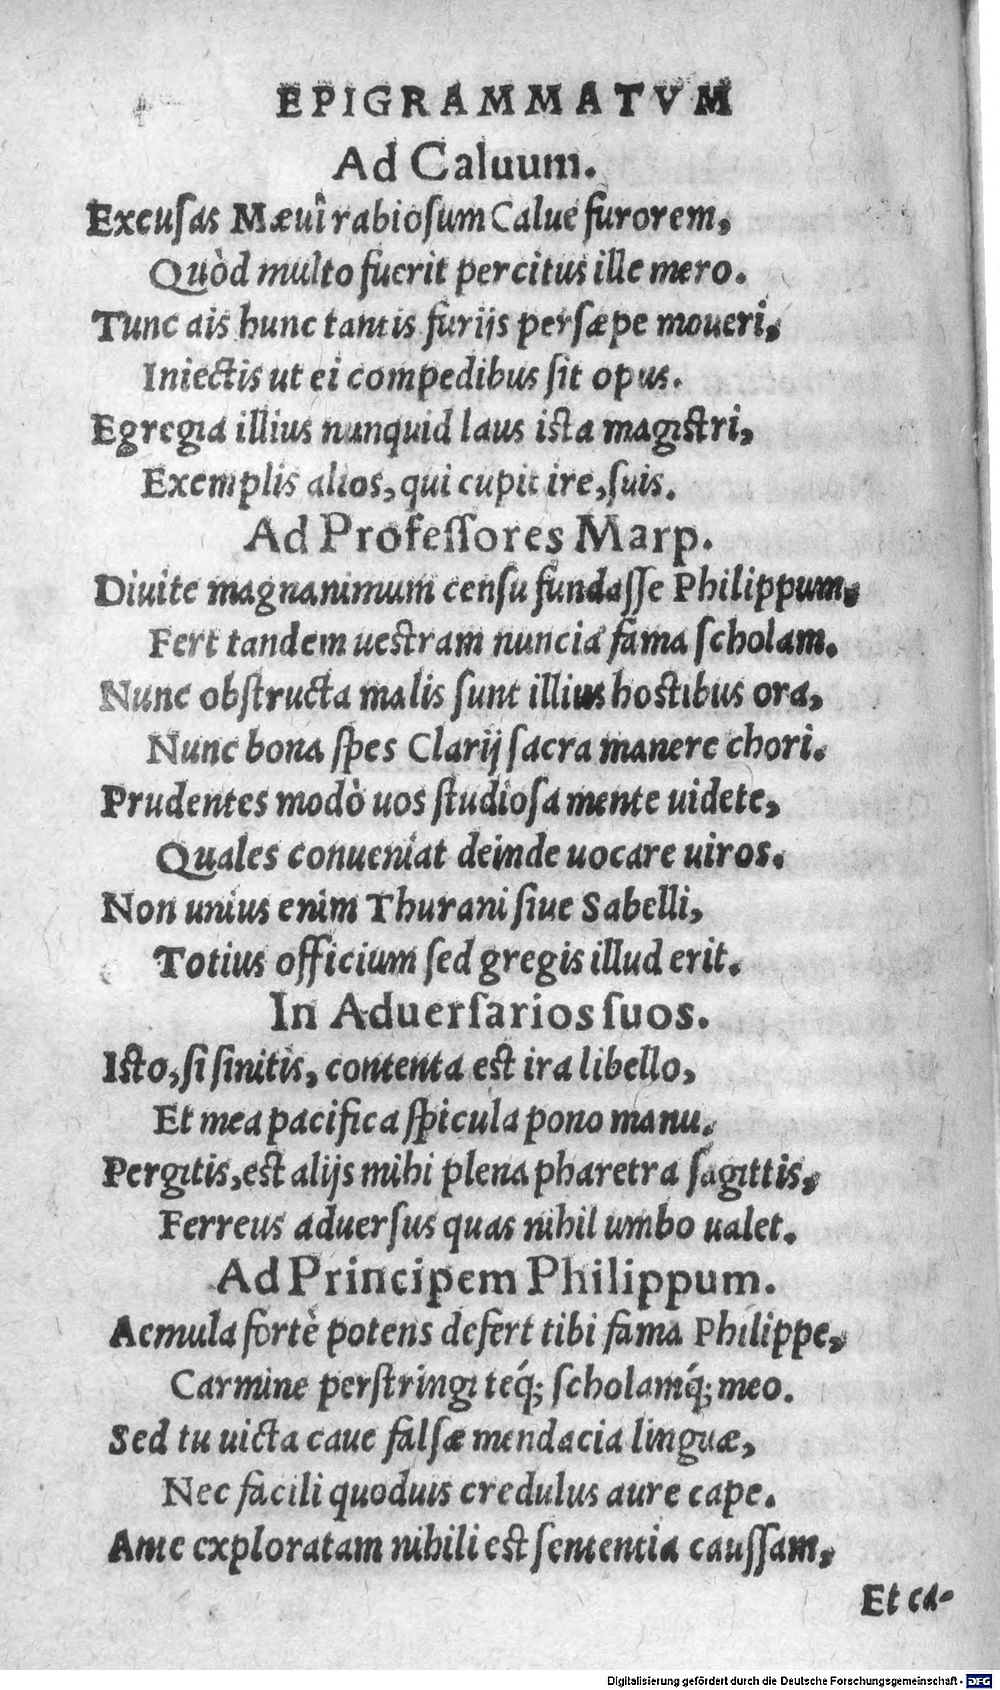 EPIGRAMMATVM
Ad Caluum.
Excusas Mæui rabiosum Calue furorem,
Quòd multo fuerit percitus ille mero.
Tunc ais hunc tantis furijs persæpe moueri,
Iniectis ut ei compedibus sit opus.
Egregia illius nunquid laus ista magistri,
Exemplis alios, qui cupit ire, suis.
Ad Professores Marp.
Diuite magnanimum censu fundasse Philippum,
Fert tandem uestram nuncia fama scholam.
Nunc obstructa malis sunt illius hostibus ora,
Nunc bona spes Clarij sacra manere chori.
Prudentes modò uos studiosa mente uidete,
Quales conueniat deinde uocare uiros.
Non unius enim Thurani siue Sabelli,
Totius officium sed gregis illud erit.
In Aduersarios suos.
Isto, si sinitis, contenta est ira libello,
Et mea pacifica spicula pono manu.
Pergitis, est alijs mihi plena pharetra sagittis,
Ferreus aduersus quas nihil umbo ualet.
Ad Principem Philippum.
Aemula fortè potens defert tibi fama Philippe,
Carmine perstringi teq́; scholamq́; meo.
Sed tu uicta caue falsæ mendacia linguæ,
Nec facili quoduis credulus aure cape.
Ante exploratam nihili est sententia caussam,
Et ca-
Digitalisierung gefördert durch die Deutsche Forschungsgemeinschaft - DFG